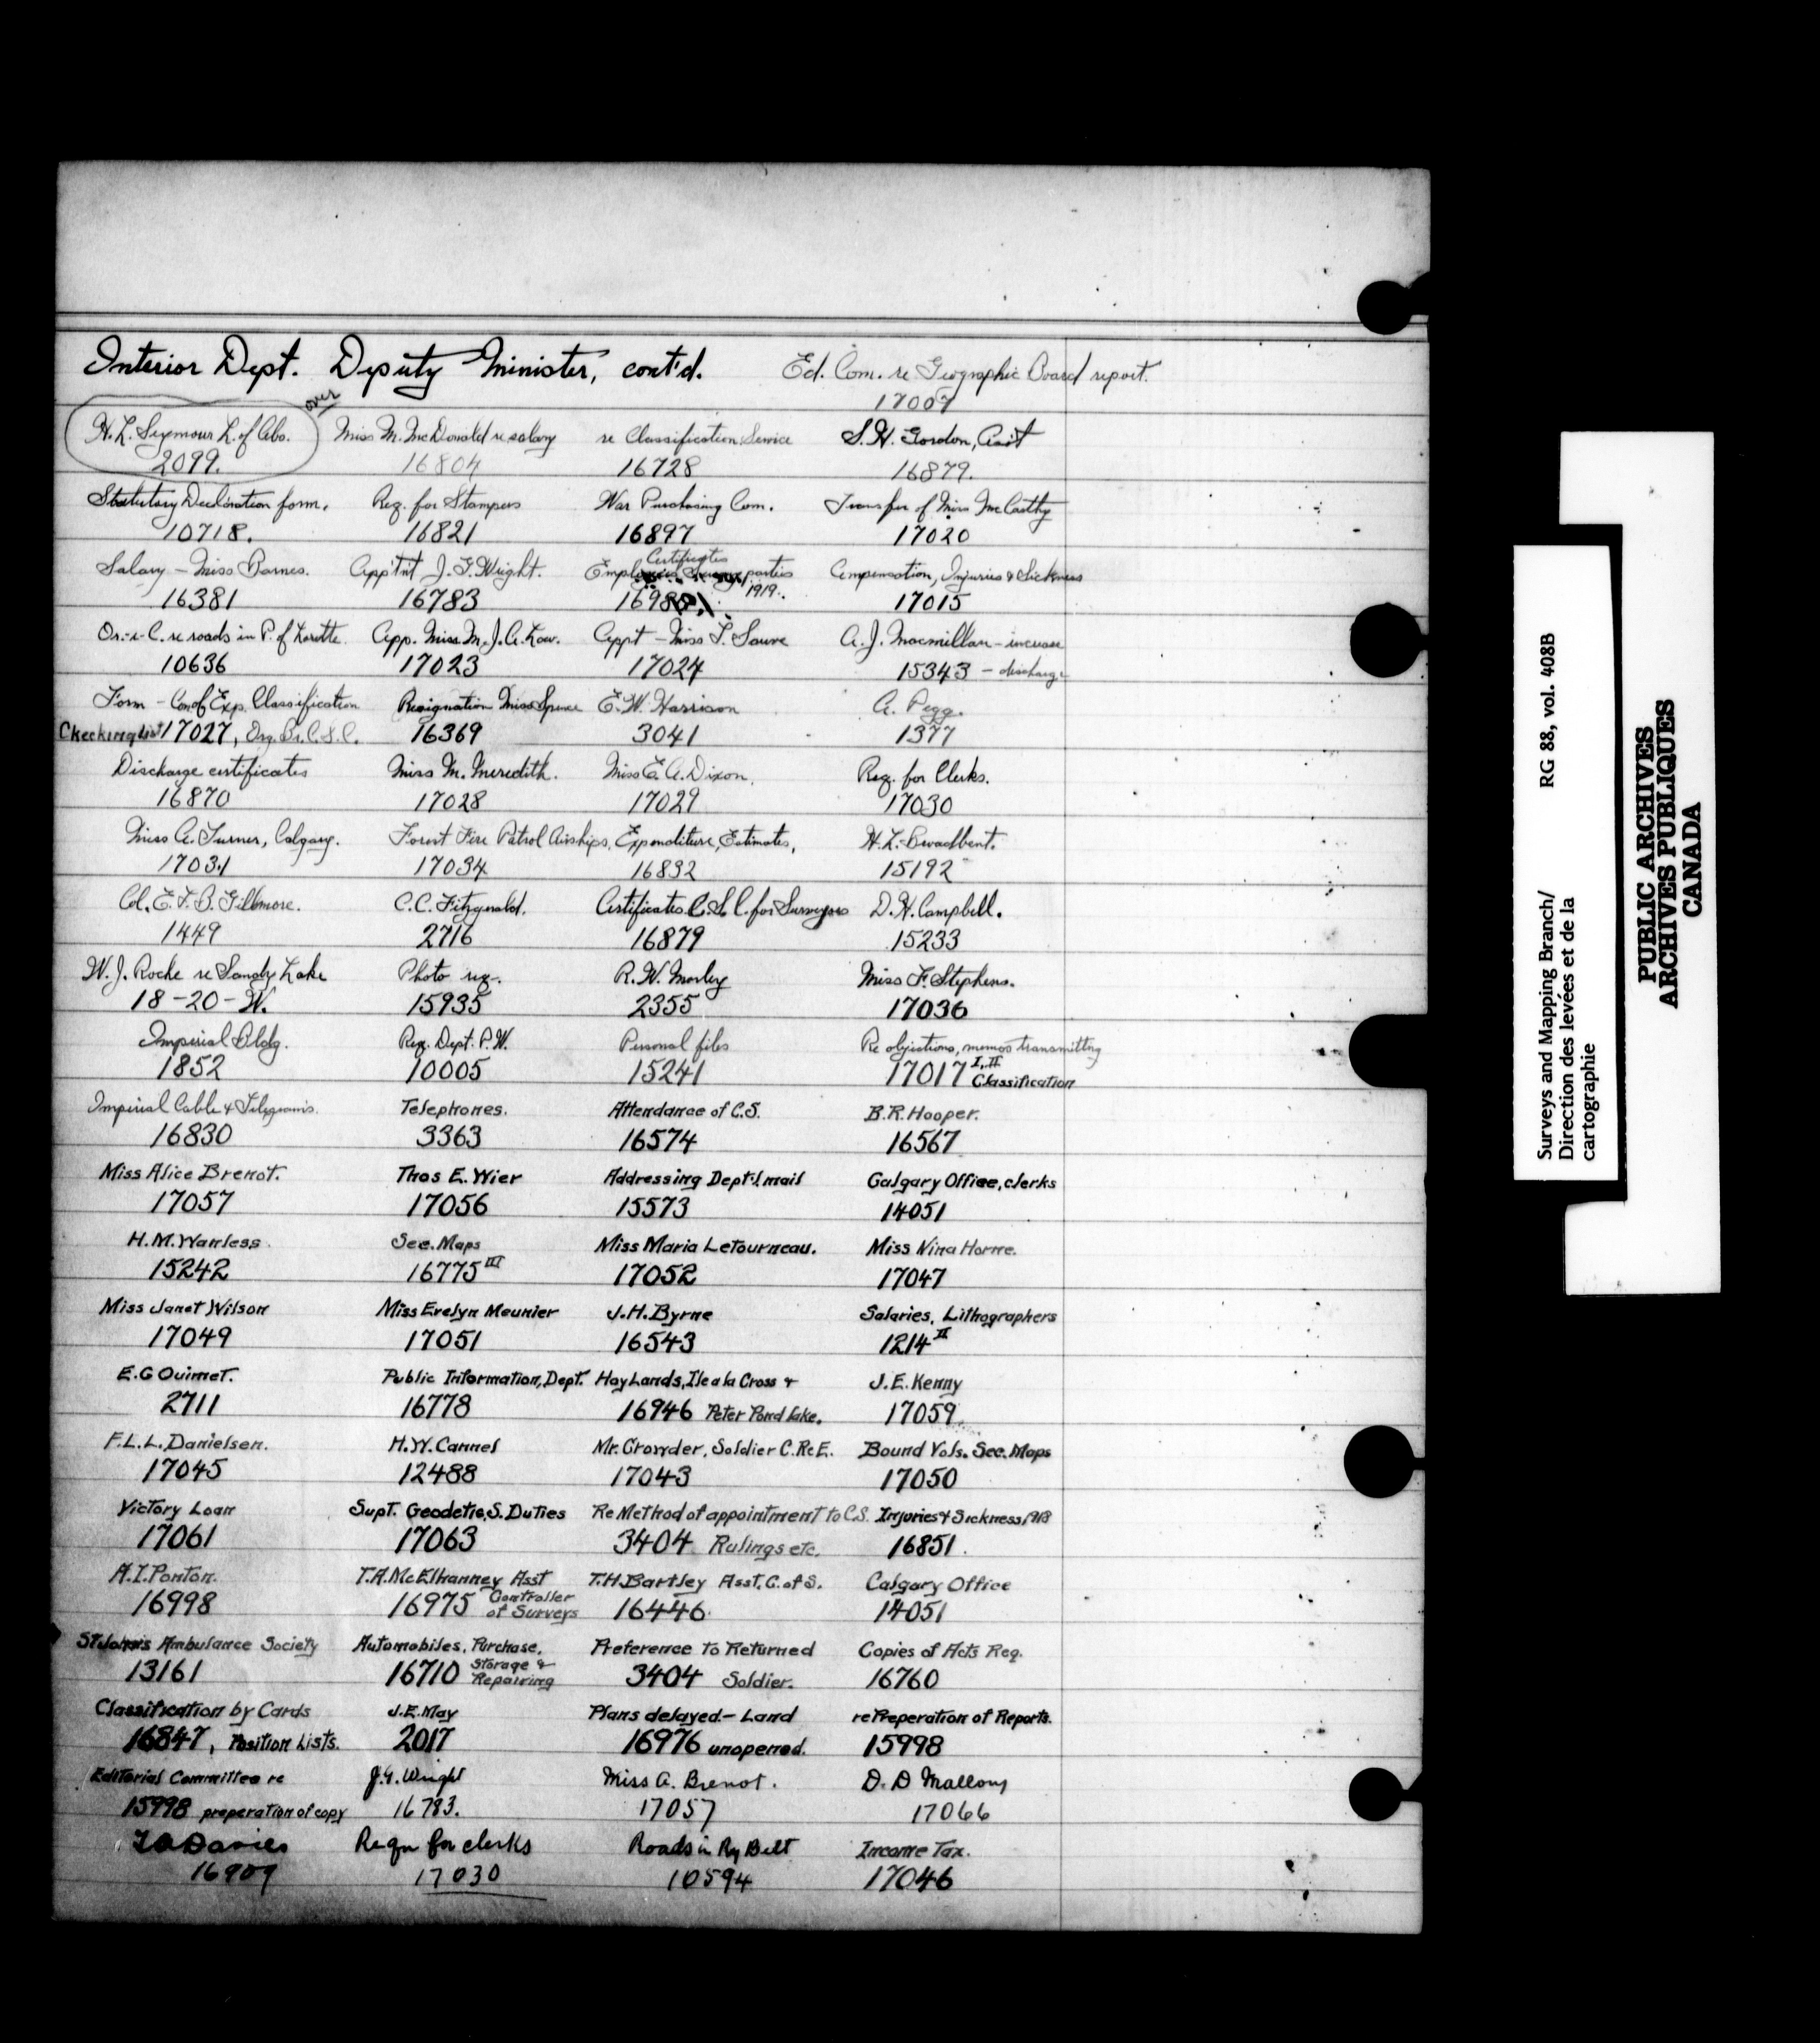 Interior Dept. Deputy Minister, cont'd. Ed. Com. re Geographic Board report.
over 17007
H. L. Seymour L. of Abs. Miss M. McDonald re salary re Classification Service S. H. Gordon, Ass't
2099. 16804 16728 16879.
Statutory Declaration form. Req. for Stampers War Purchasing Com. Transfer of Miss McCarthy
10718. 16821 16897 17020
Certificates
Salary - Miss Barnes. App'tnt J. G. Wright. parties Compensation, Injuries & Sickness
16381 16783 1919. 17015
Or.-i-C. re roads in P. of Lorette. App. Miss M. J. A. Low. Appt - Miss T. Sauve A. J. Macmillan - increase
10636 17023 17024 15343 - discharge
Form - Con. of Exp. Classification Resignation Miss Spence E. W. Harrison A. Pegg.
Checking list 17027, Org. Br. C.S.C. 16369 3041 1377
Discharge certificates Miss M. Meredith. Miss E. A. Dixon. Req. for Clerks.
16870 17028 17029 17030
Miss A. Turner, Calgary. Forest Fire Patrol Airships, Expenditure, Estimates, H. L. Broadbent.
17031 17034 16832 15192
Col. E. T. B. Gillmore. C. C. Fitzgerald. Certificates C.S.C. for Surveyors D. H. Campbell.
1449 2716 16879 15233
W. J. Roche re Sandy Lake Photo req. R. W. Morley Miss F. Stephens.
18-20-W. 15935 2355 17036
Imperial Bldg. Req. Dept. P.W. Personal files Re objections, memos transmitting
1852 10005 15241 17017 I, II Classification
Imperial Cable & Telegrams. Telephones. Attendance of C.S. B. R. Hooper.
16830 3363 16574 16567
Miss Alice Brenot. Thos E. Wier Addressing Dept'l. mail Calgary Office, clerks
17057 17056 15573 14051
H. M. Wanless. Sec. Maps Miss Maria LeTourneau. Miss Nina Horne.
15242 16775 III 17052 17047
Miss Janet Wilson Miss Evelyn Meunier J. H. Byrne Salaries, Lithographers
17049 17051 16543 1214 II
E. G Ouimet. Public Information, Dept. Hay Lands, Ile a la Cross & J. E. Kenny
2711 16778 16946 Peter Pond Lake. 17059
F. L. L. Danielsen. H. W. Cannel Mr. Crowder, Soldier C. Re E. Bound Vols. Sec. Maps
17045 12488 17043 17050
Victory Loan Supt. Geodetic, S. Duties Re Method of appointment to C.S. Injuries & Sickness, 1918
17061 17063 3404 Rulings etc. 16851.
A. I. Ponton. T. A. McElhanney Asst T. H. Bartley Asst. C. of S. Calgary Office
16998 16975 Controller of Surveys 16446. 14051
St John's Ambulance Society Automobiles, Purchase, Preference to Returned Copies of Acts Req.
13161 16710 Storage & Repairing 3404 Soldier. 16760
Classification by Cards J. E. May Plans delayed - Land re Preperation of Reports.
16847, Position Lists. 2017 16976 unopened. 15998
Editorial Committee re J. G. Wright Miss A. Brenot. D. D Mallory
15998 preperation of copy 16783. 17057 17066
Davies Reqn for clerks Roads in Ry Belt Income Tax.
16909 17030 10594 17046
Surveys and Mapping Branch/ RG 88, vol. 408B
Direction des levées et de la
cartographie
PUBLIC ARCHIVES
ARCHIVES PUBLIQUES
CANADA